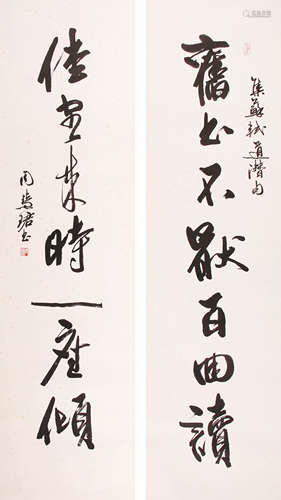 集蘇軾道潛句
舊书不厭百回讀
佳客來時一座傾
周慧珺书